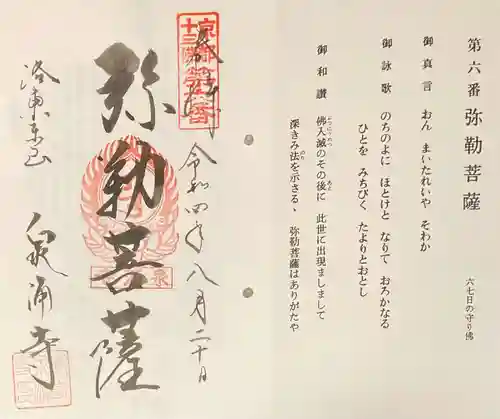 第六番 弥勒菩薩 六七日の守り佛
御真言 おん まいたれいや そわか
御詠歌 のちのよに ほとけと なりて おろかなる
ひとを みちびく たよりとおとし
御和讃 佛入滅のその後に 此世に出現ましまして
深きみ法を示さるゝ 弥勒菩薩はありがたや
奉拝 令和四年八月二十日
弥勒菩薩
洛東東山 泉涌寺